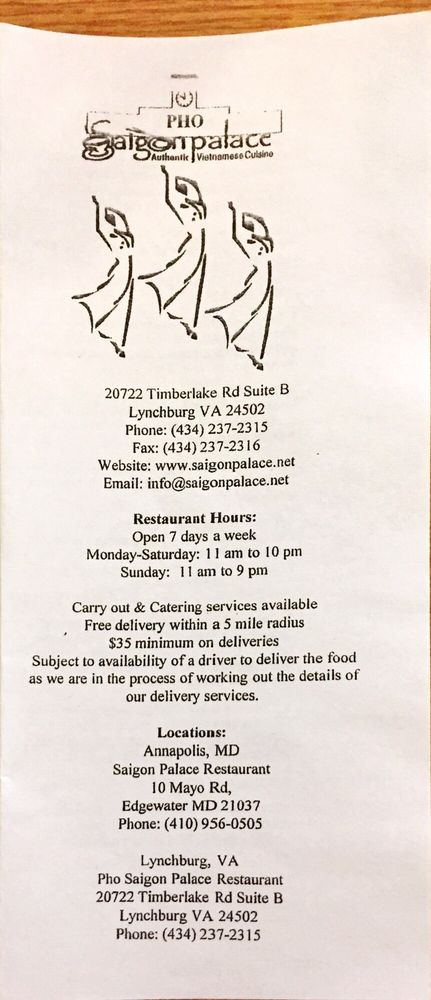 PHO
Saigon palace
Authentic Vietnamese Cuisine
20722 Timberlake Rd Suite B
Lynchburg VA 24502
Phone: (434) 237-2315
Fax: (434) 237-2316
Website: www.saigonpalace.net
Email: info@saigonpalace.net
Restaurant Hours:
Open 7 days a week
Monday-Saturday: 11 am to 10 pm
Sunday: 11 am to 9 pm
Carry out & Catering services available
Free delivery within a 5 mile radius
$35 minimum on deliveries
Subject to availability of a driver to deliver the food
as we are in the process of working out the details of
our delivery services.
Locations:
Annapolis, MD
Saigon Palace Restaurant
10 Mayo Rd,
Edgewater MD 21037
Phone: (410) 956-0505
Lynchburg, VA
Pho Saigon Palace Restaurant
20722 Timberlake Rd Suite B
Lynchburg VA 24502
Phone: (434) 237-2315